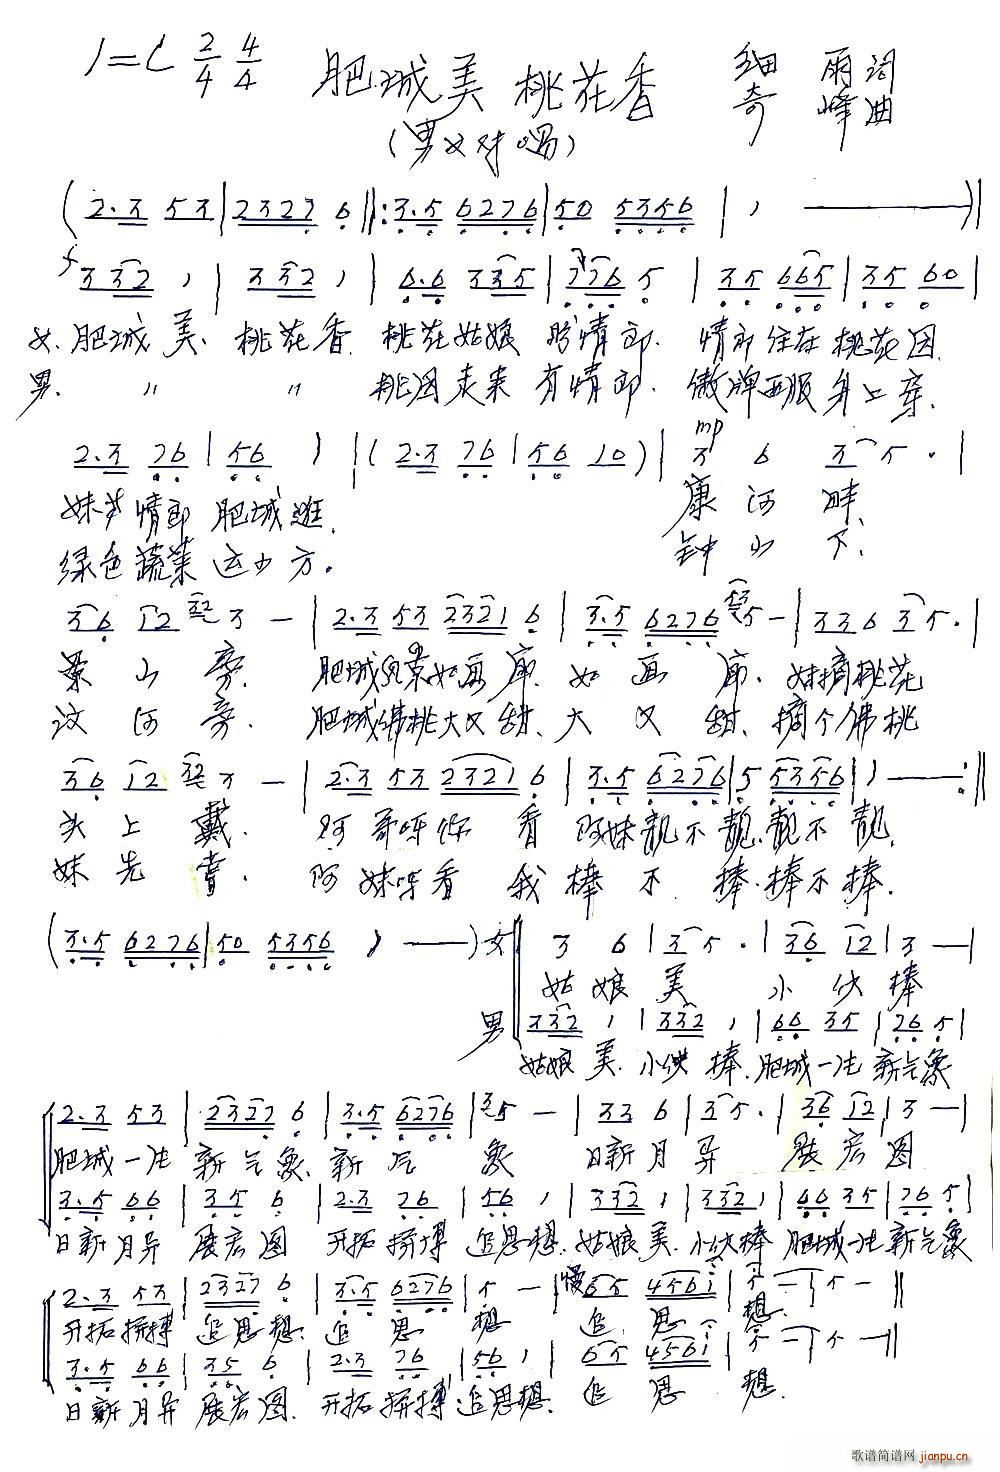 1=C 2/4 4/4 肥城美 桃花香 细雨词
奇峰曲
(男女对唱)
(2.3 53|2327 6||:3.5 6276|50 5356|1 ——)|
f 332 1|332 1|6.6 335|776 5|35 665|35 60|
女.肥城美.桃花香.桃花姑娘 情郎.情郎住在桃花园.
男. 〃 〃 桃园走来有情郎. 牌西服身上穿.
2.3 76|56 1|(2.3 76|56 10)|mp 3 6 3 5.|
妹 情郎肥城逛. 康河畔.
绿色蔬菜 方. 钟山下.
36 12 32 3 -|2.3 53 2321 6|3.5 6276 5 -|336 35.|
景山旁.肥城风景如画廊.如画廊.妹摘桃花
汶河旁.肥城佛桃大又甜、大又甜、摘个佛桃
36 12 32 3 -|2.3 53 2321 6|3.5 6276|5 5356|1 ——:||
头上戴.阿哥呀你看阿妹靓不靓.靓不靓.
妹先尝.阿妹呀看我棒不棒.棒不棒.
(3.5 6276|50 5356 1 ——)女 3 6|3 5.|36 12|3 —|
姑娘美 小伙棒
男 332 1|332 1|66 35|76 5|
姑娘美.小伙棒.肥城一派新气象
2.3 53|2327 6|3.5 6276|5 —|33 6|3 5.|36 12|3 —|
肥城一派新气象.新气象 日新月异 展宏图
3.5 66|35 6|2.3 76|56 1|332 1|332 1|66 35|76 5|
日新月异展宏图 开拓拼搏追思想.姑娘美.小伙棒 肥城一派新气象
2.3 53|2327 6|3.5 6276|5 —|慢 65 4561|5 —|5 —||
开拓拼搏追思想.追思想 追思想.
3.5 66|35 6|2.3 76|56 1|65 4561|5 —|5 —||
日新月异展宏图.开拓拼搏追思想.追思想.
歌谱简谱网 jianpu.cn